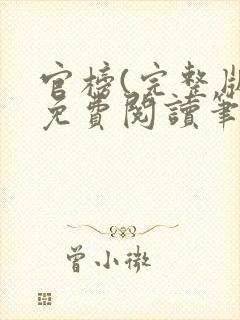 官榜(完整版
免費閱讀筆
曾小微